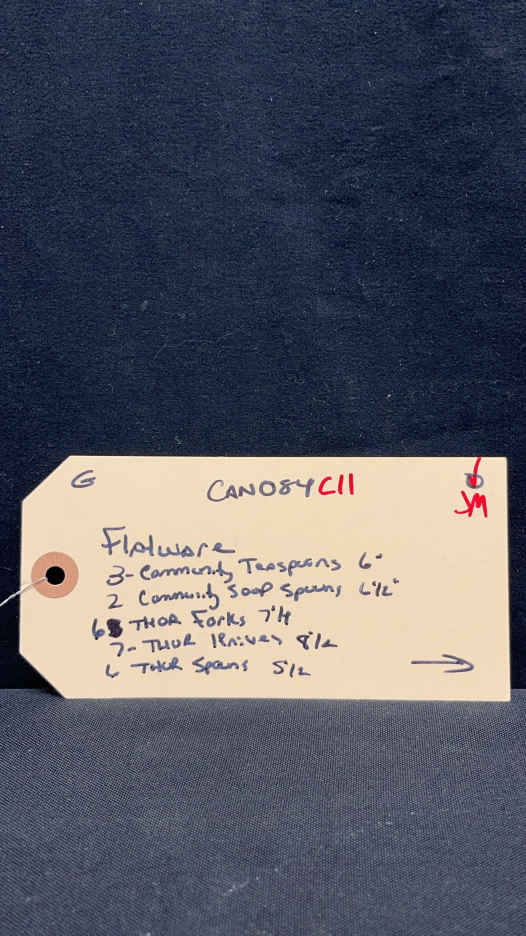 G CAN084 C11
JM
Flatware
3- Community Teaspoons 6"
2 Community Soup Spoons 6 1/2"
6 THOR Forks 7 1/4
7- THOR Knives 8 1/2
6 THOR Spoons 5 1/2
→